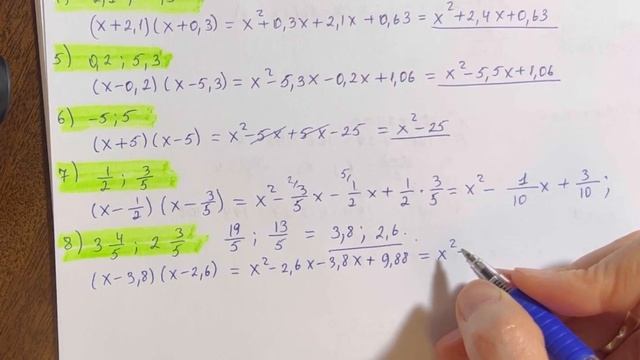 (x+2,1)(x+0,3) = x²+0,3x+2,1x+0,63 = x²+2,4x+0,63
5) 0,2 ; 5,3
(x-0,2)(x-5,3) = x²-5,3x-0,2x+1,06 = x²-5,5x+1,06
6) -5 ; 5
(x+5)(x-5) = x²-5x+5x-25 = x²-25
7) 1/2 ; 3/5
(x-1/2)(x-3/5) = x²- 2/ 3/5 x - 5/ 1/2 x + 1/2 · 3/5 = x² - 1/10 x + 3/10 ;
8) 3 4/5 ; 2 3/5 19/5 ; 13/5 = 3,8 ; 2,6 .
(x-3,8)(x-2,6) = x²-2,6x-3,8x+9,88 = x²-